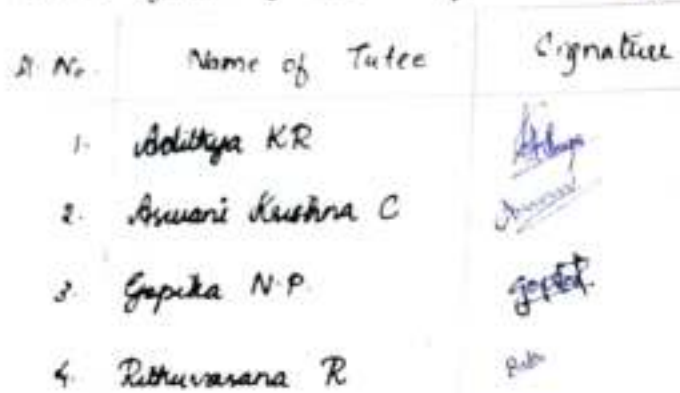 Sl. No. Name of Tutee Signature
1. Adithya KR
2. Aswani Krishna C
3. Gopika N.P. gopika
4. Rithuvarana R Rithu